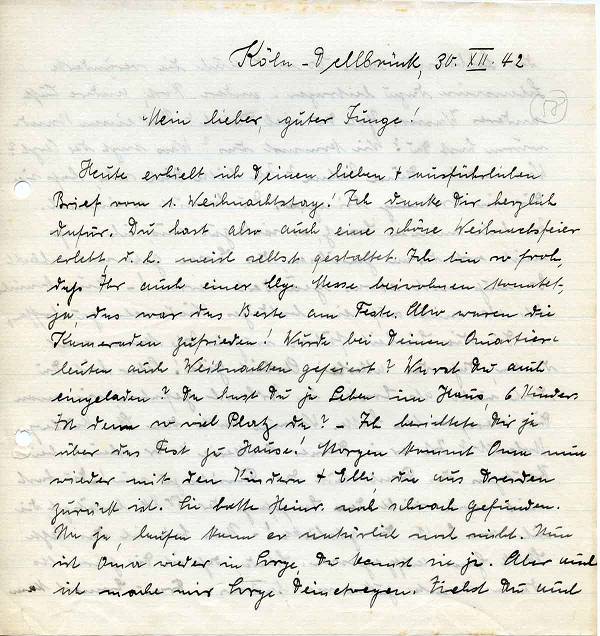 Köln-Dellbrück, 30. XII. 42
(58)
Mein lieber, guter Junge!
Heute erhielt ich Deinen lieben + ausführlichen
Brief vom 1. Weihnachtstag! Ich danke Dir herzlich
dafür. Du hast also auch eine schöne Weihnachtsfeier
erlebt, d. h. meist selbst gestaltet. Ich bin so froh,
daß Ihr auch einer hlg. Messe beiwohnen konntet,
ja, das war das Beste am Feste. Also waren die
Kameraden zufrieden! Wurde bei Deinen Quartiers-
leuten auch Weihnachten gefeiert? Warst Du auch
eingeladen? Da hast Du ja Leben im Haus, 6 Kinder.
Ist denn so viel Platz da? - Ich berichtete Dir ja
über das Fest zu Hause! Morgen kommt Oma nun
wieder mit den Kindern + Elli, die aus Dresden
zurück ist. Sie hatte Heinr. noch schwach gefunden.
Na ja, laufen kann er natürlich noch nicht. Nun
ist Oma wieder in Sorge, Du kennst sie ja. Aber auch
ich mache mir Sorge Deinetwegen. Siehst Du auch